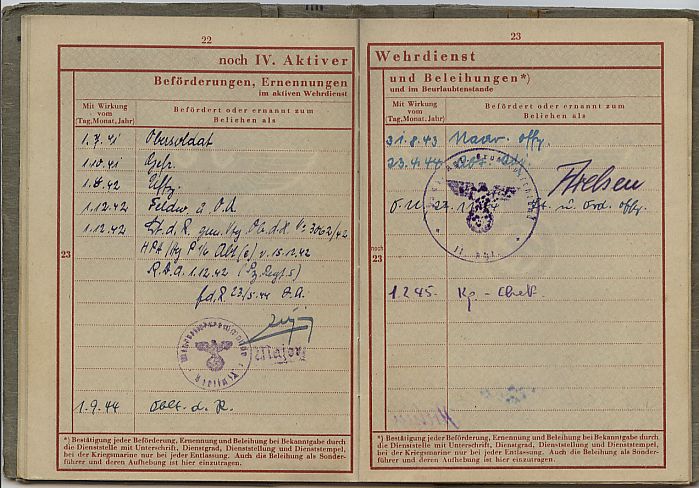 22
noch IV. Aktiver
Beförderungen, Ernennungen
im aktiven Wehrdienst
Mit Wirkung
vom
(Tag, Monat, Jahr)
Befördert oder ernannt zum
Beliehen als
1.7.41 Obersoldat
1.10.41 Gefr.
1.8.42 Uffz.
1.12.42 Feldw. u. O.A.
1.12.42 Lt. d. R. gem. Vfg.
v. 15.12.42
R.D.A. 1.12.42
f.d.R. 23/5.44
Major
23
1.9.44 Oblt. d. R.
*) Bestätigung jeder Beförderung, Ernennung und Beleihung bei Bekanntgabe durch
die Dienststelle mit Unterschrift, Dienstgrad, Dienststellung und Dienststempel,
bei der Kriegsmarine nur bei jeder Entlassung. Auch die Beleihung als Sonder-
führer und deren Aufhebung ist hier einzutragen.
23
Wehrdienst
und Beleihungen*)
und im Beurlaubtenstande
Mit Wirkung
vom
(Tag, Monat, Jahr)
Befördert oder ernannt zum
Beliehen als
31.8.43
23.4.44
u. Ord. Offz.
noch
23
1.2.45. Kp-Chef.
*) Bestätigung jeder Beförderung, Ernennung und Beleihung bei Bekanntgabe durch
die Dienststelle mit Unterschrift, Dienstgrad, Dienststellung und Dienststempel,
bei der Kriegsmarine nur bei jeder Entlassung. Auch die Beleihung als Sonder-
führer und deren Aufhebung ist hier einzutragen.